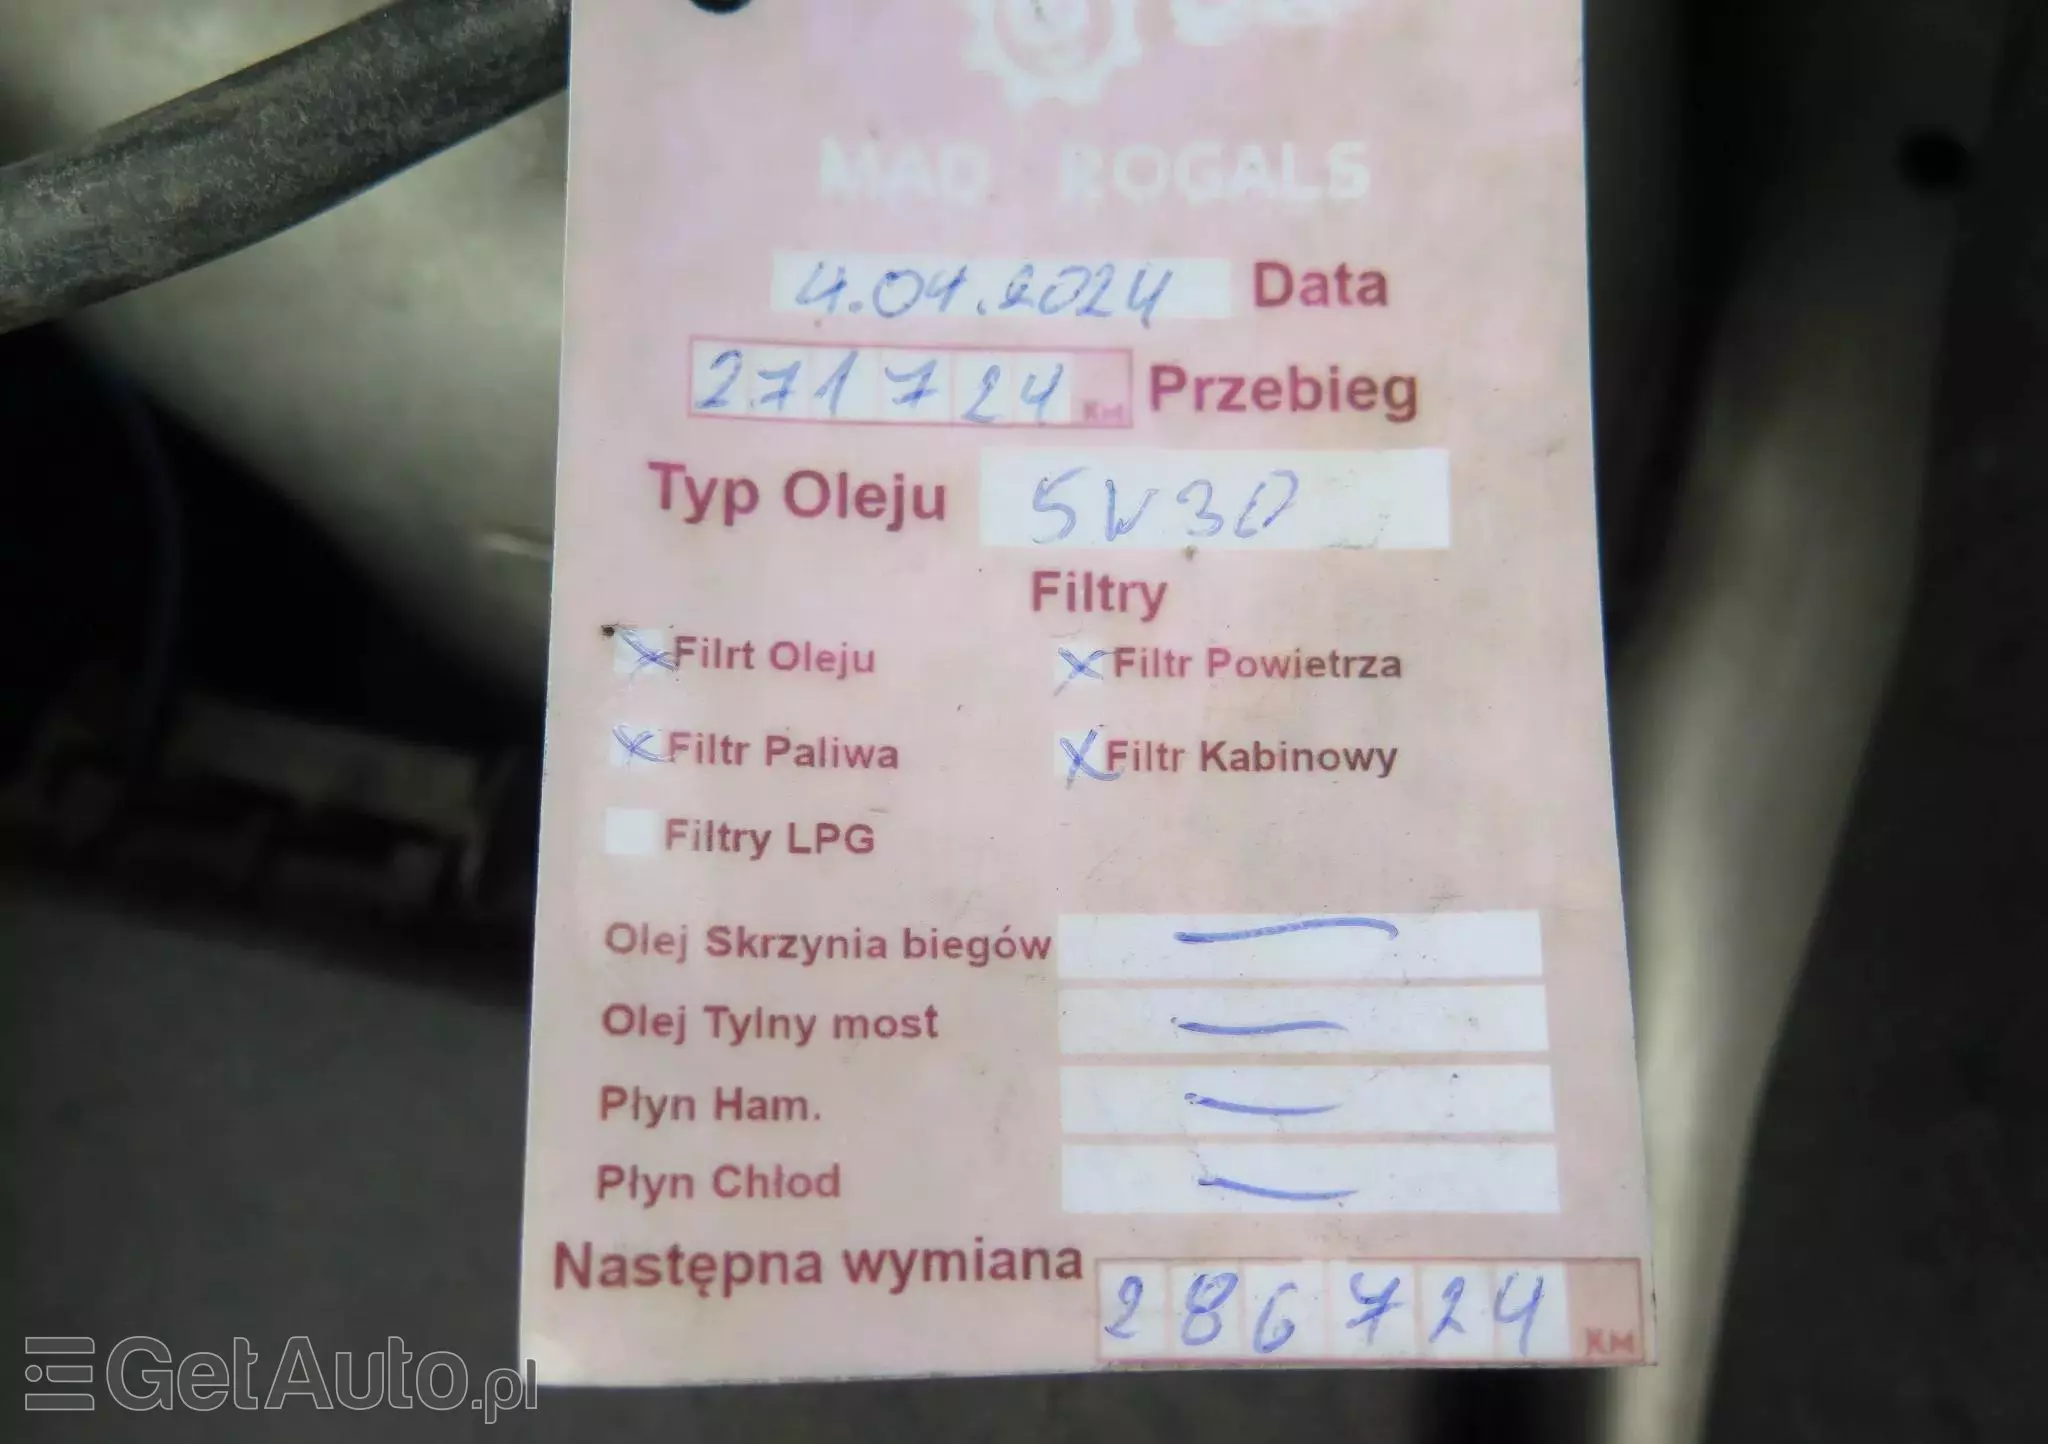 MAD ROGALS
4.04.2024 Data
271724 KM Przebieg
Typ Oleju 5W30
Filtry
X Filrt Oleju X Filtr Powietrza
X Filtr Paliwa X Filtr Kabinowy
Filtry LPG
Olej Skrzynia biegów —
Olej Tylny most —
Płyn Ham. —
Płyn Chłod —
Następna wymiana 286724 KM
GetAuto.pl